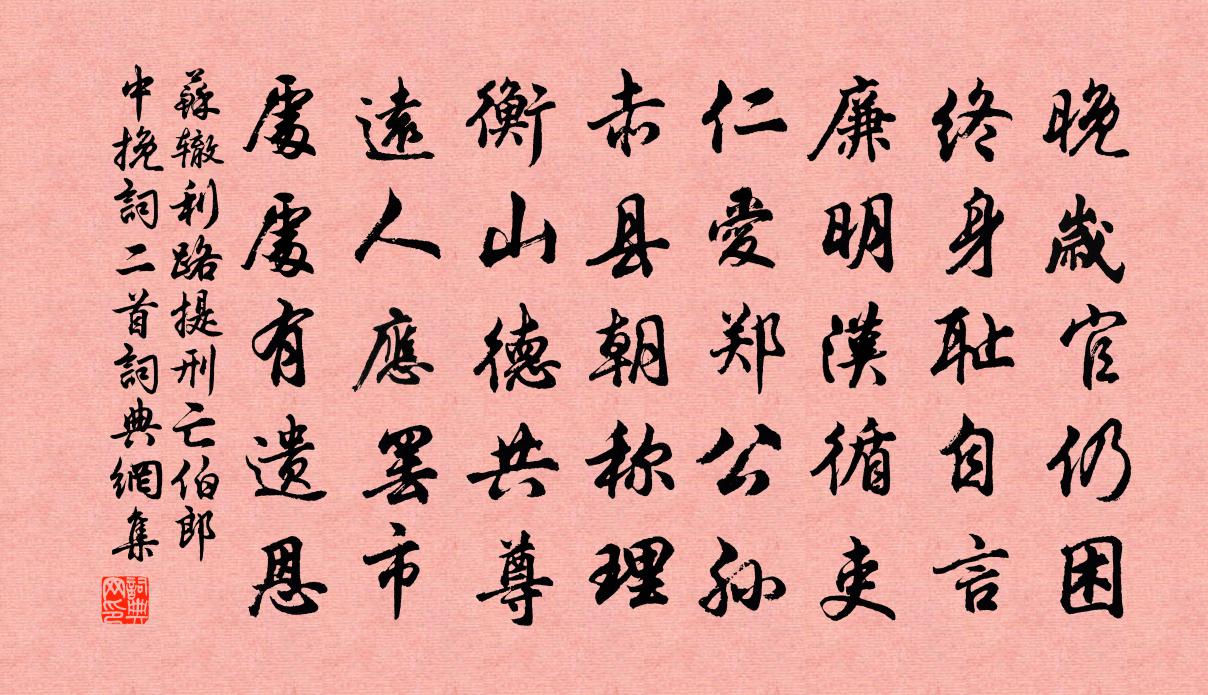 晚歲官仍困
終身耻自言
廉明漢循吏
仁愛郑公孙
赤县朝称理
衡山德共尊
遠人應罢市
處處有遗恩
蘇辙利路提刑亡伯郎
中挽詞二首詞典網集
詞典
网印